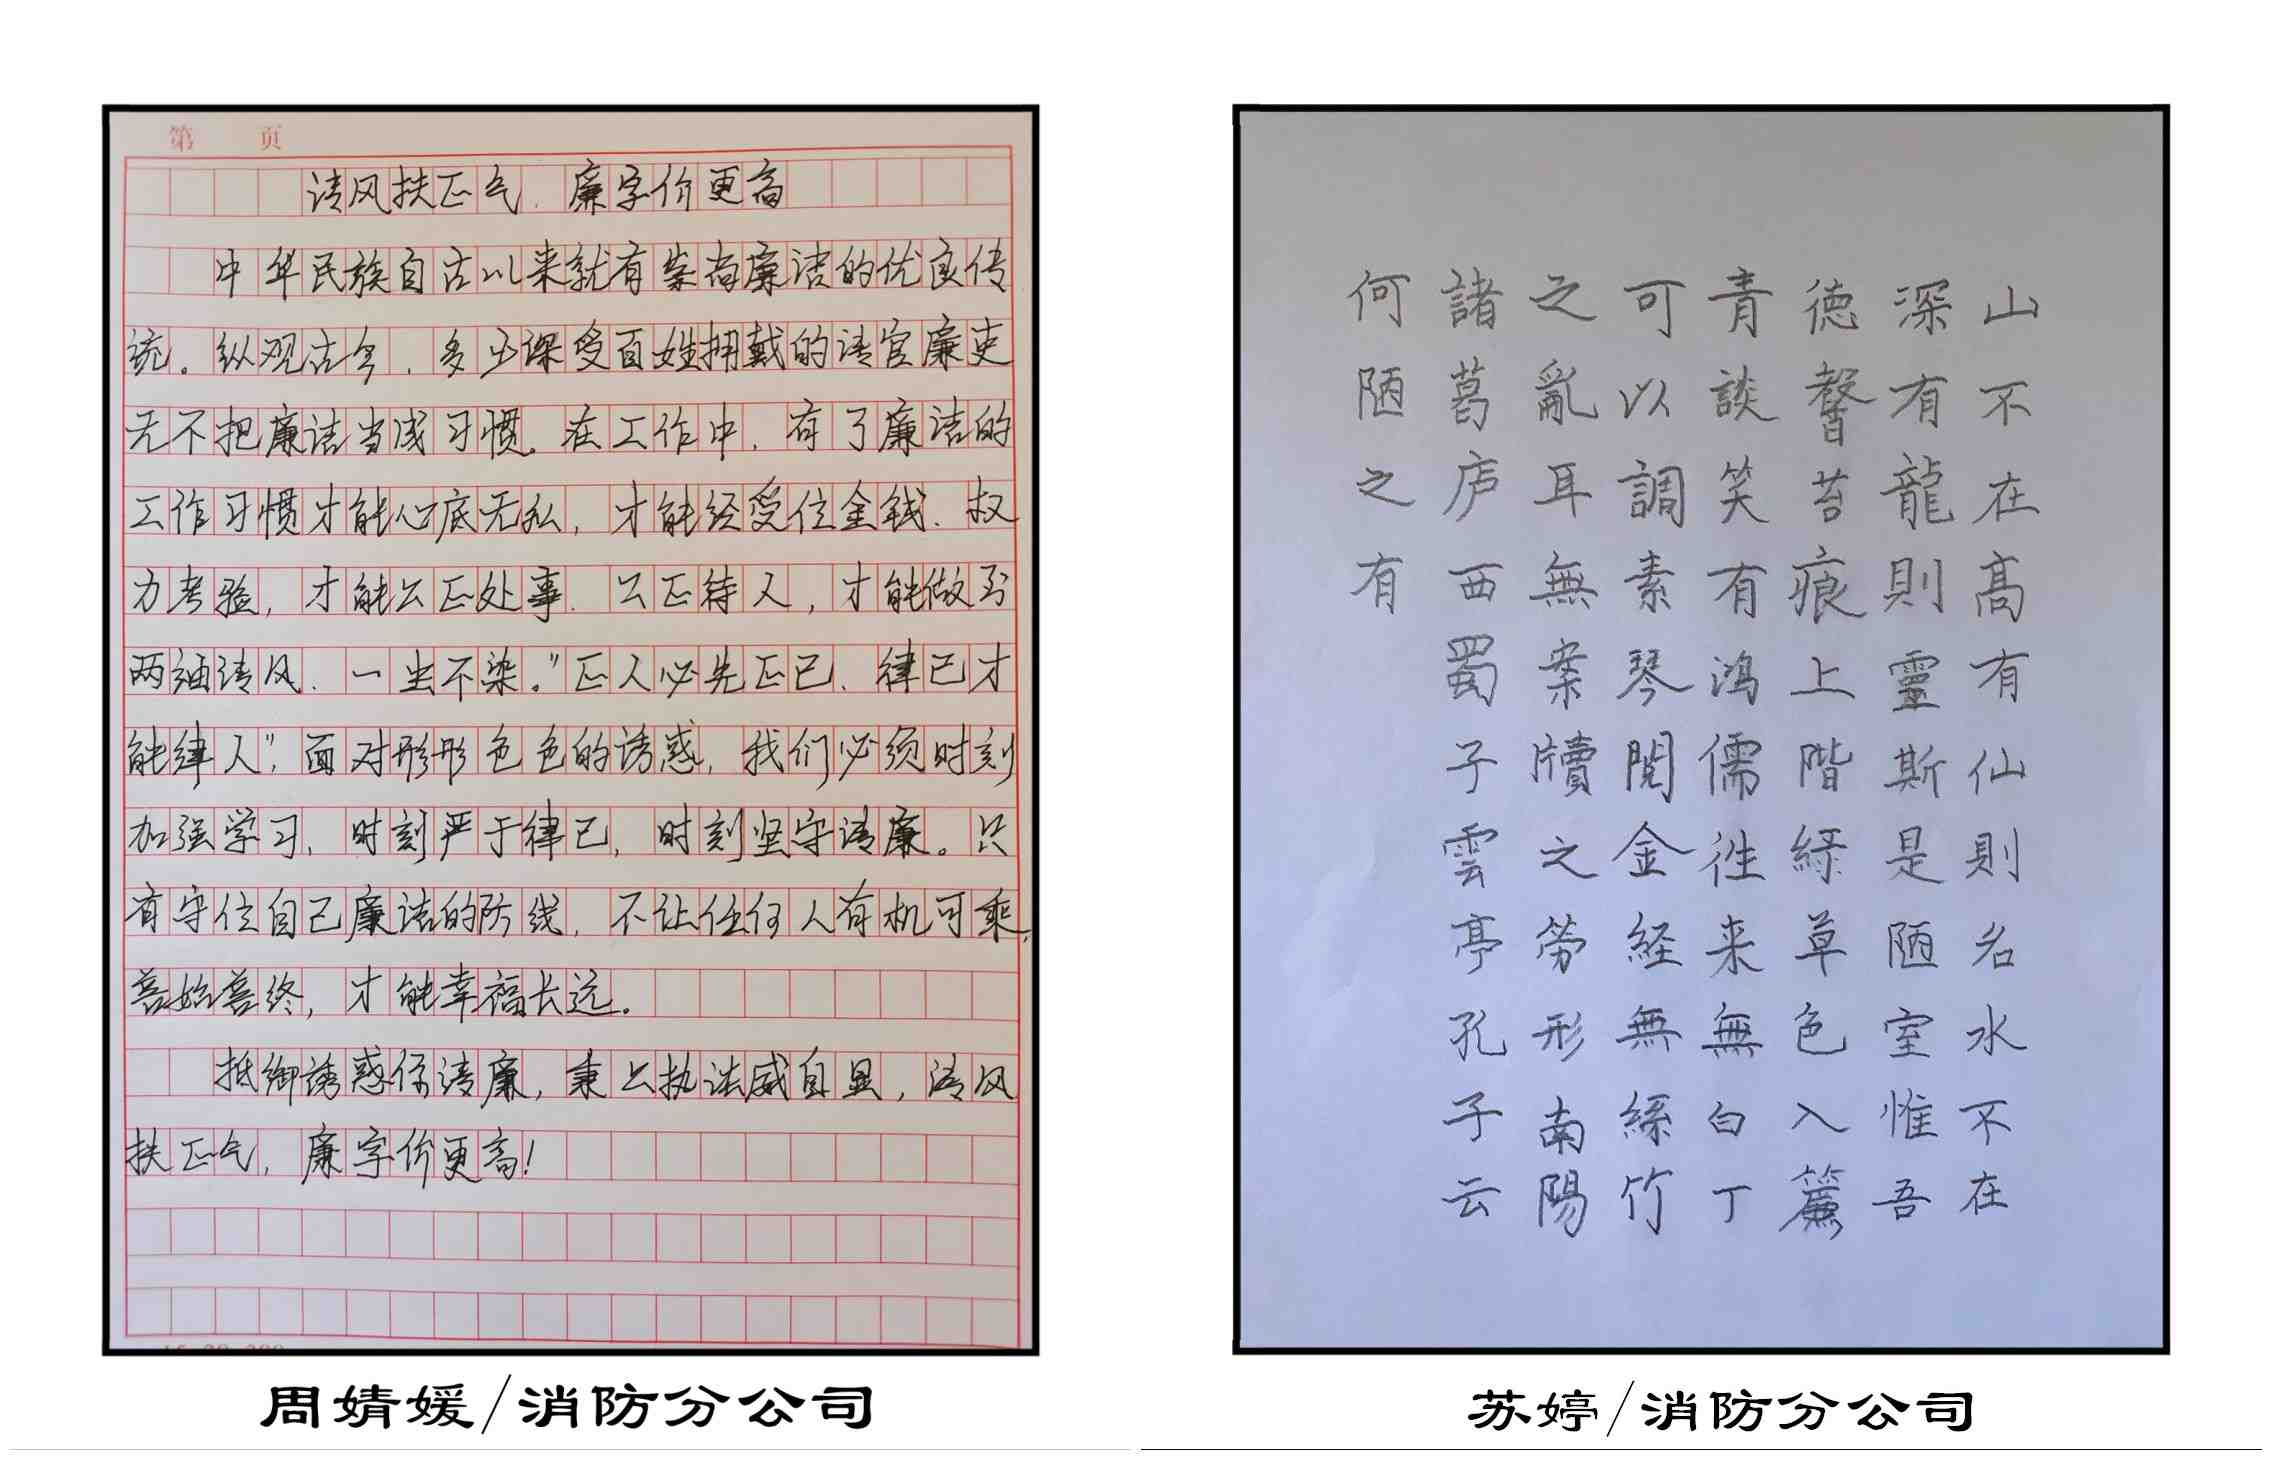 第 页
清风扶正气、廉字价更高
中华民族自古以来就有崇尚廉洁的优良传
统。纵观古今、多少深受百姓拥戴的清官廉吏
无不把廉洁当成习惯。在工作中、有了廉洁的
工作习惯才能心底无私，才能经受住金钱、权
力考验，才能公正处事、公正待人，才能做到
两袖清风、一尘不染。"正人必先正己、律己才
能律人"，面对形形色色的诱惑，我们必须时刻
加强学习、时刻严于律己，时刻坚守清廉。只
有守住自己廉洁的防线，不让任何人有机可乘，
善始善终，才能幸福长远。
抵御诱惑保清廉，秉公执法威自显，清风
扶正气，廉字价更高！
周婧媛/消防分公司
山不在高有仙則名水不在
深有龍則靈斯是陋室惟吾
德馨苔痕上階緑草色入簾
青談笑有鸿儒往来無白丁
可以調素琴閲金経無絲竹
之亂耳無案牘之劳形南陽
諸葛庐西蜀子雲亭孔子云
何陋之有
苏婷/消防分公司